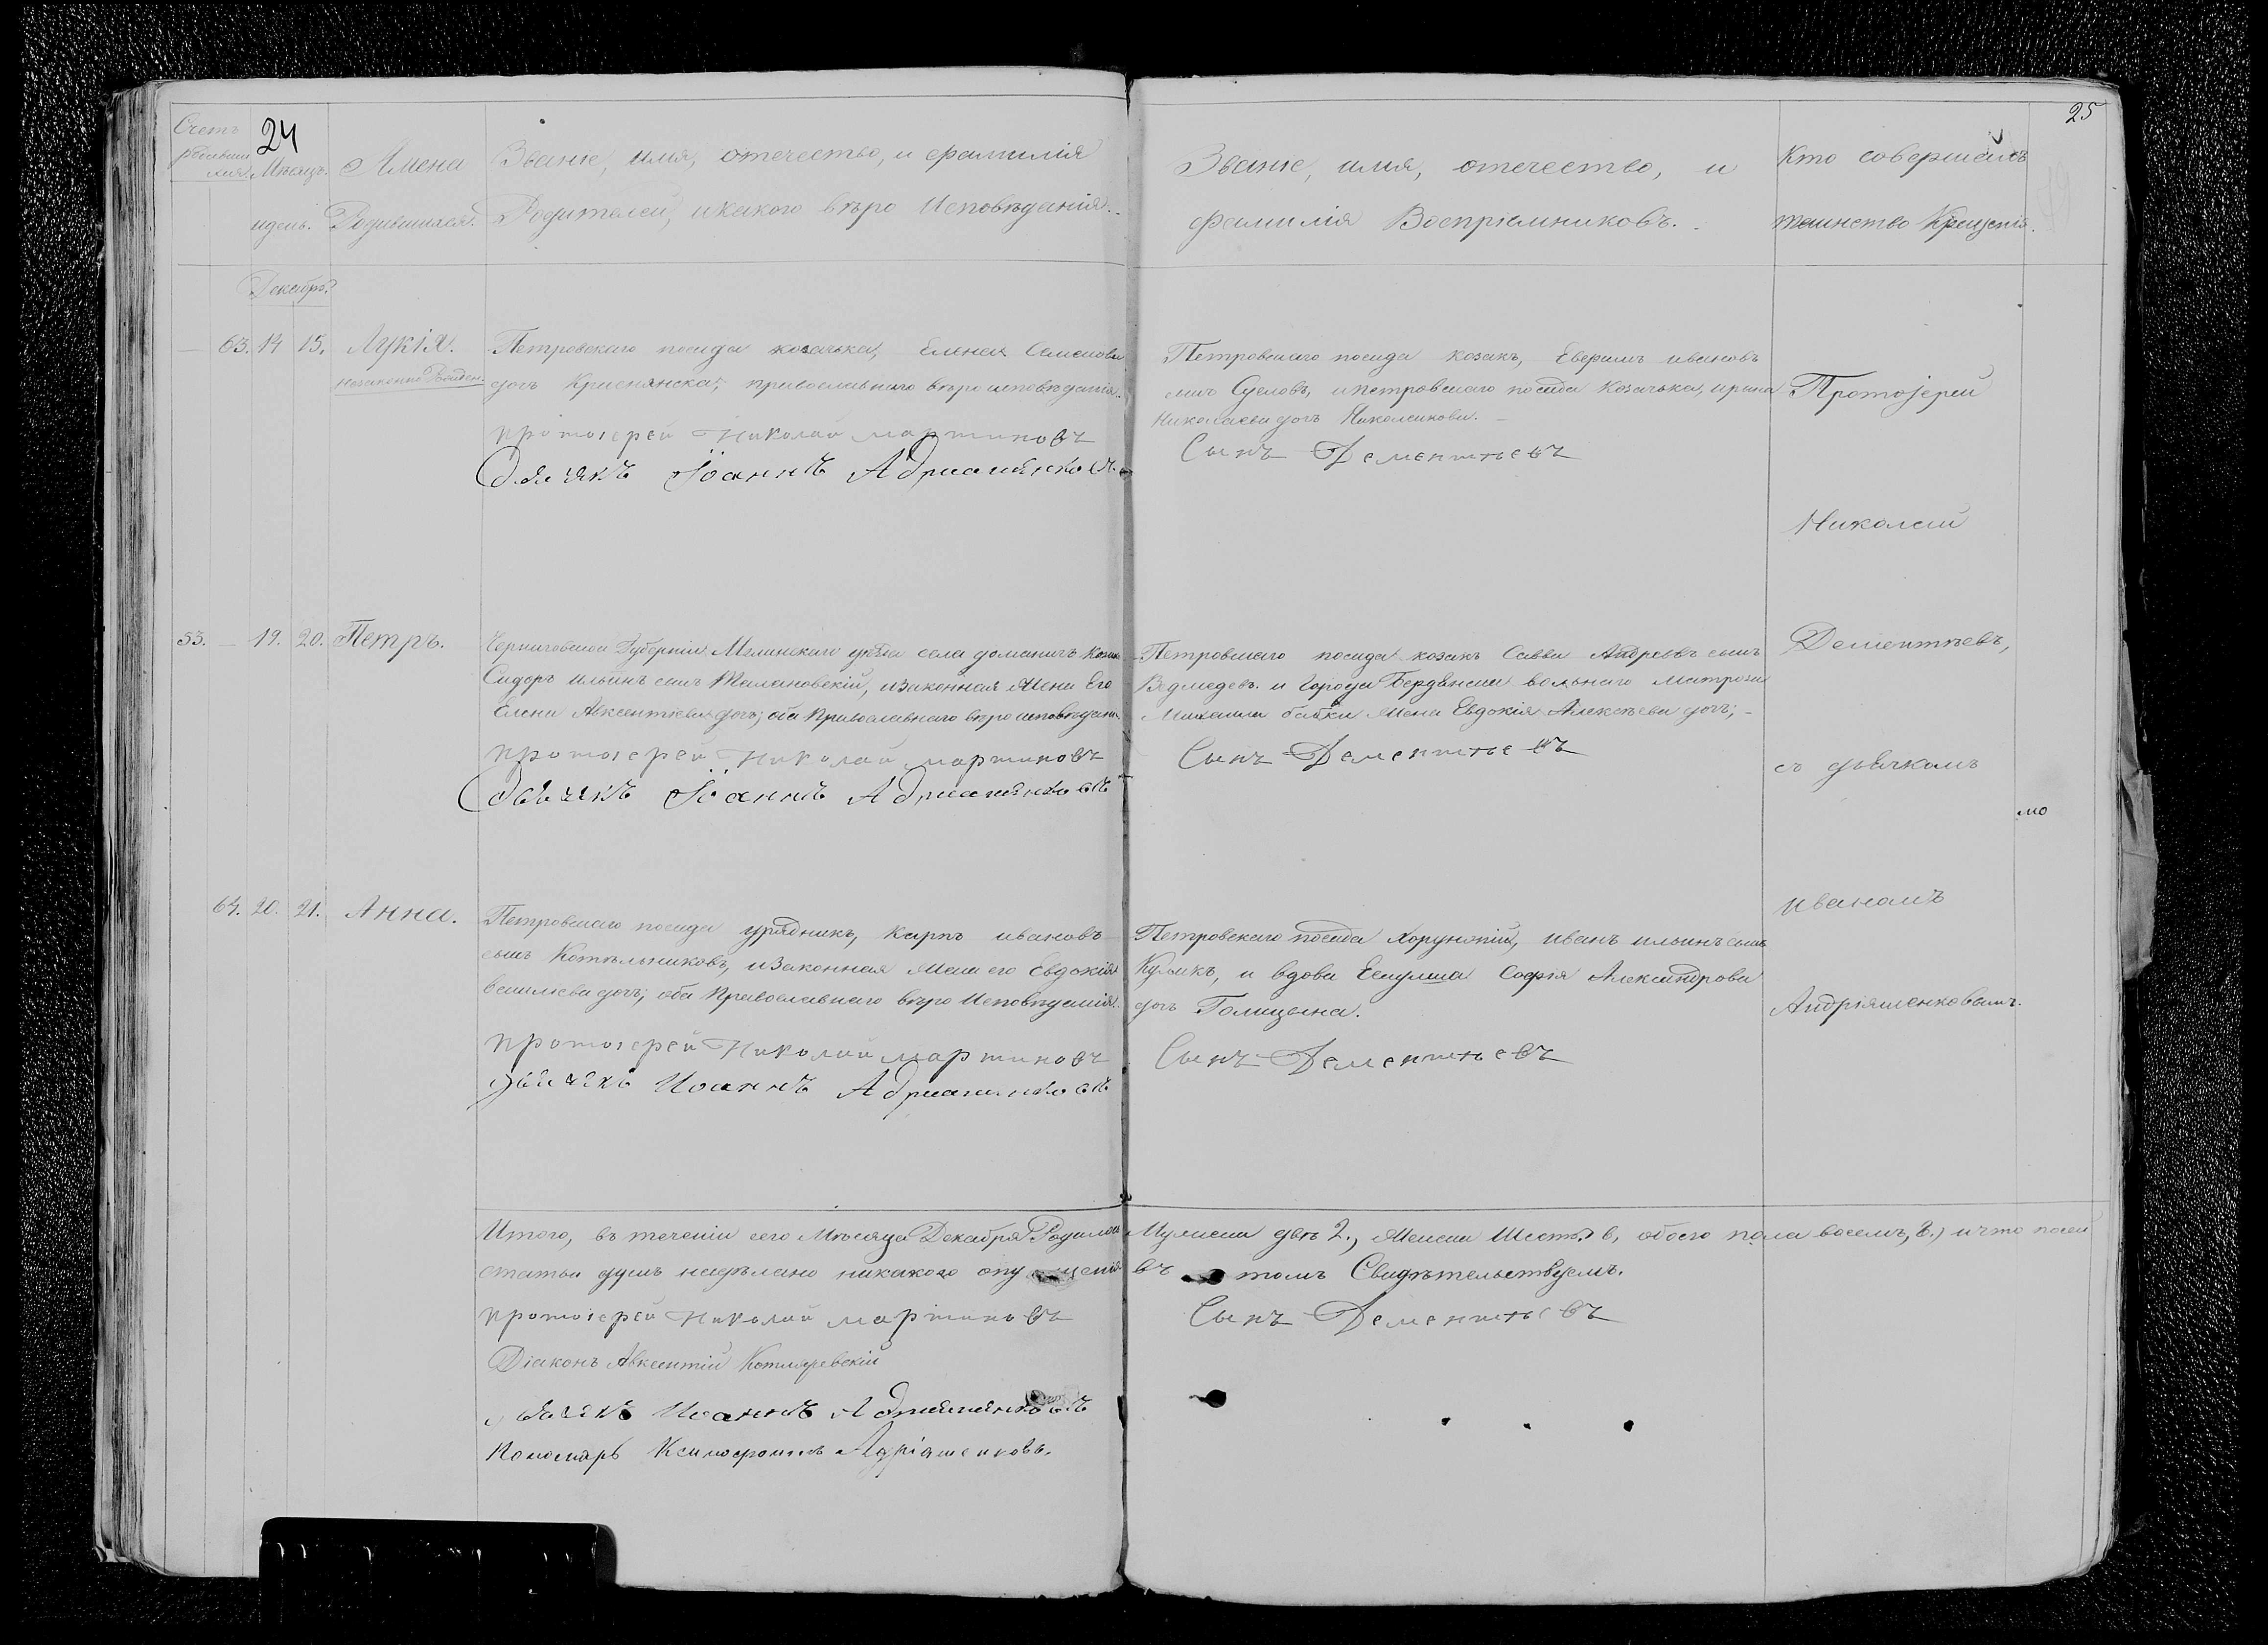 24
25
Счетъ
Мѣсяцъ.
Имена
Званіе, имя, отечество, и фамилія
идень.
Родившихся.
Родителей, икакого вѣро Исповѣданія.
Званіе, имя, отечество, и
фамилія Воспріемниковъ.
Кто совершалъ
таинство Крещенія.
Декабрь
63. 14 15. Лукія.
незаконно Рожден.
Петровскаго посада козачька, Елена Семенова
дочь православнаго вѣро исповѣданія.
протоіерей Николай мартиновъ
Дьячекъ Іоаннъ Адрианенковъ
Петровскаго посада козакъ, Ефримъ ивановъ
ипетровскаго посада козачька, ирина
Николаева дочь
Сынъ Дементьевъ
Протоіерей
Николай
Дементѣевъ,
съ дьячкомъ
мо
иваномъ
Андріяшенковымъ.
53. — 19. 20. Петръ.
Черниговской Губерніи Мглинскаго уѣзда села
Сидоръ ильинъ сынъ изаконная Жена Его
Елена Авксентіева дочь; оба Православнаго вѣро исповѣдани.
протоіерей Николай мартиновъ
Дьячекъ Іоаннъ Адрианенковъ
Петровскаго посада козакъ Савва Андреевъ сынъ
Ведмедевъ. и Города Бердянска вольнаго Матроза
Михаила бабки Жена Евдокія Алексѣева дочь; –
Сынъ Дементьевъ
64. 20. 21. Анна.
Петровскаго посада урядникъ, карпъ ивановъ
сынъ Котѣльниковъ, изаконная Жена его Евдокія
васильева дочь; оба Православнаго вѣро Исповѣданія.
протоіерей Николай мартиновъ
Дьячекъ Иоаннъ Адрианенковъ
Петровскаго посада Хорунжій, иванъ ильинъ сынъ
Куликъ, и вдова Есаулша Софія Александрова
дочь Голицына.
Сынъ Дементьевъ
Итого, въ теченіи сего Мѣсяца Декабря Родилось Мужеска двѣ 2., Женска Шесть 6, обоего пола восемъ, 8.) ичто посей
статьи душъ несдѣлано никакого въ томъ Свидѣтельствуемъ.
протоіерей Николай мартиновъ
Сынъ Дементьевъ
Діаконъ Авксентій Котляревскій
Дьячекъ Иоаннъ Адрианенковъ
Пономарь Ксинофонтъ Адріяшенковъ.